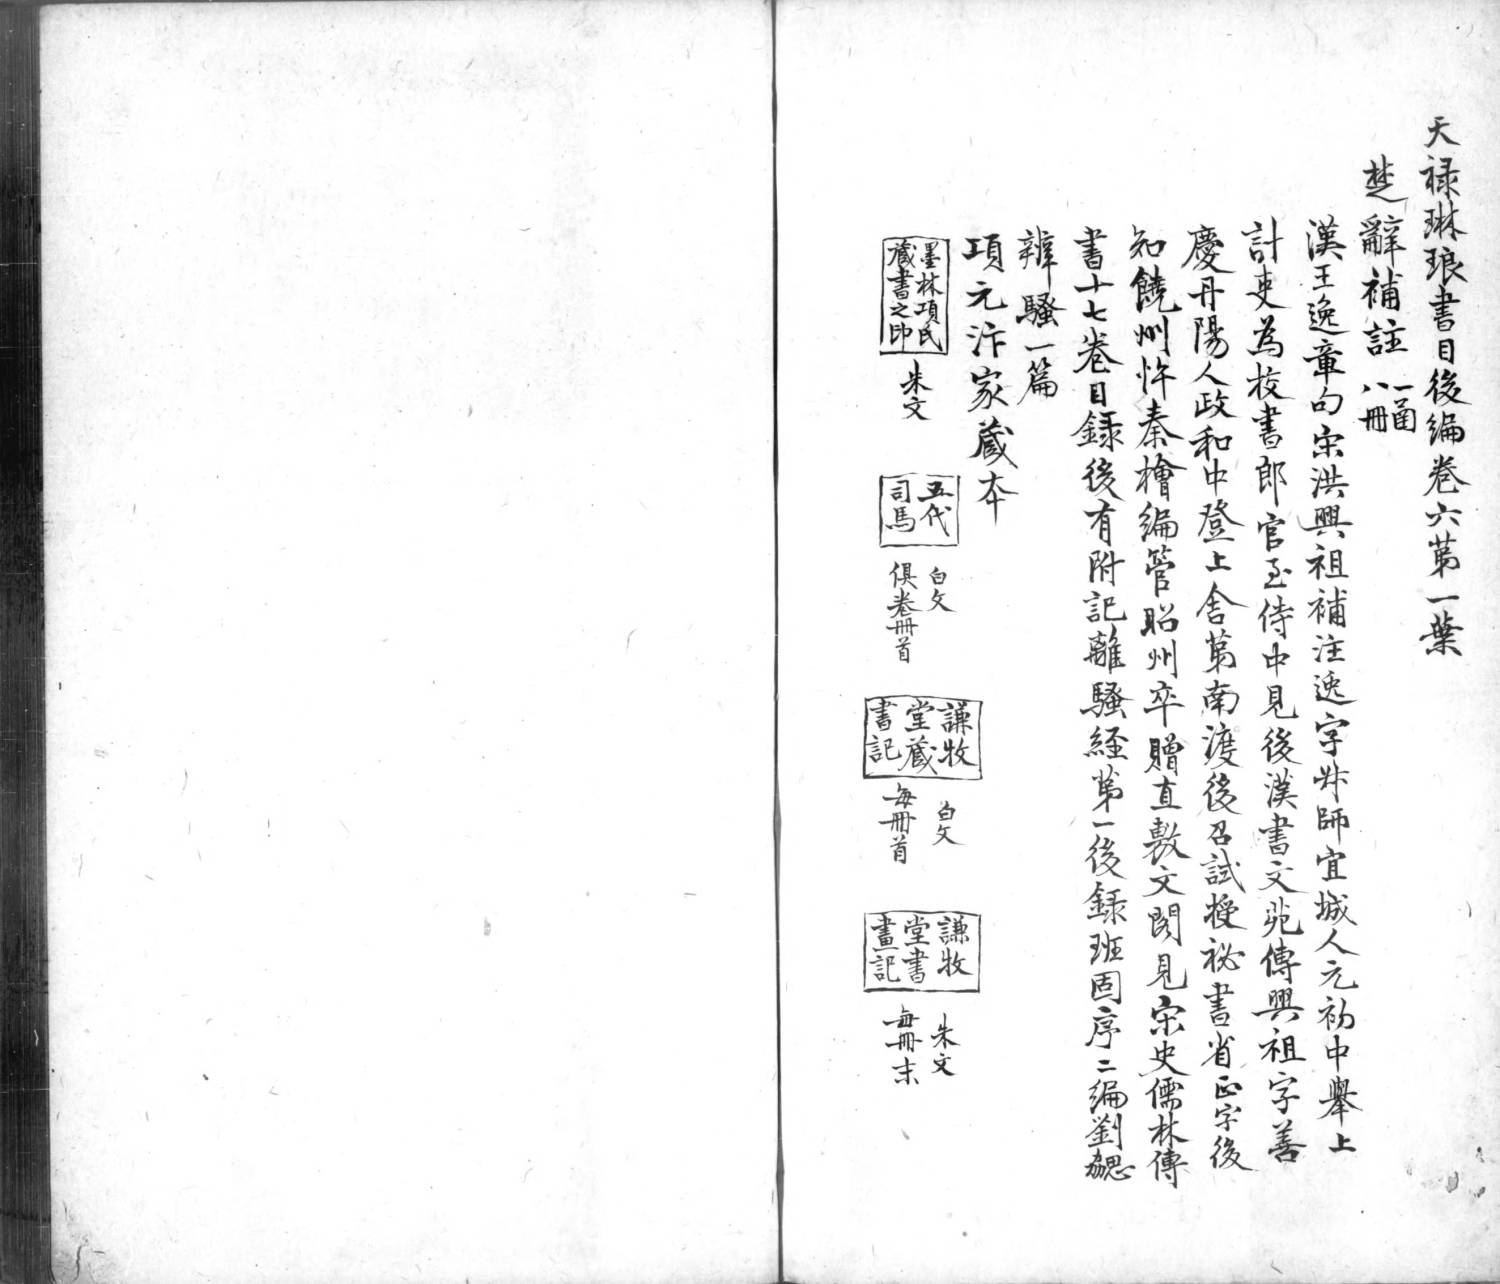 天禄琳琅書目後編卷六第一葉
楚辭補註 一函八冊
漢王逸章句宋洪興祖補注逸字叔師宜城人元初中舉上
計吏為校書郎官至侍中見後漢書文苑傳興祖字善
慶丹陽人政和中登上舍第南渡後召試授祕書省正字後
知饒州忤秦檜編管昭州卒贈直敷文閣見宋史儒林傳
書十七卷目錄後有附記離騷經第一後錄班固序二編劉勰
辨騷一篇
項元汴家藏本
墨林項氏
藏書之印
朱文
五代
司馬
白文
俱卷冊首
謙牧
堂藏
書記
白文
每冊首
謙牧
堂書
畫記
朱文
每冊末